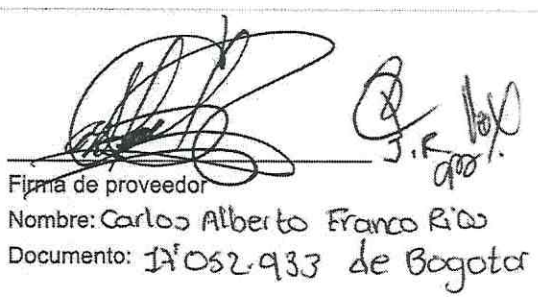 J.R
Firma de proveedor
Nombre: Carlos Alberto Franco Rios
Documento: 17'052.933 de Bogota